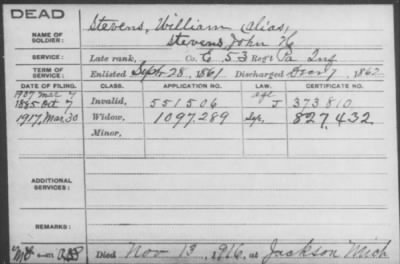 DEAD
NAME OF SOLDIER: Stevens, William (alias,
Stevens, John H.
SERVICE: Late rank, Co. E 53 Reg't Pa Inf
TERM OF SERVICE: Enlisted Sept 28, 1861 Discharged Dec 7, 1862
DATE OF FILING. CLASS. APPLICATION NO. LAW. CERTIFICATE NO.
1907 Mar 7 age
1885 Oct 7 Invalid, 551506 J 373810
1917, Mar, 30 Widow, 1097.289 827,432
Minor,
ADDITIONAL SERVICES:
REMARKS:
Died Nov 13, 1916, at Jackson Mich